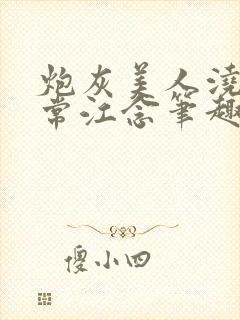 炮灰美人浇
常江念笔趣
傻小四